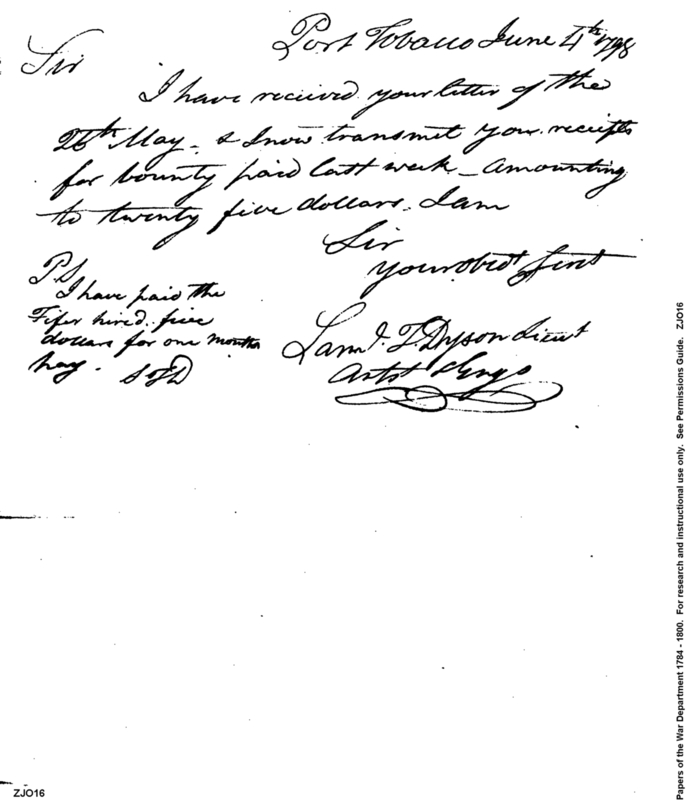 Port Tobacco June 4th 1798
Sir
I have received your letter of the
26th May - & I now transmit you receipts
for bounty paid last week - amounting
to twenty five dollars. I am
Sir
your obdt Servt
Saml. T Dyson Lieut
Artst & Engs
P.S
I have paid the
Fifer hired five
dollars for one months
pay. S T D
ZJO16
Papers of the War Department 1784 - 1800. For research and instructional use only. See Permissions Guide. ZJO16